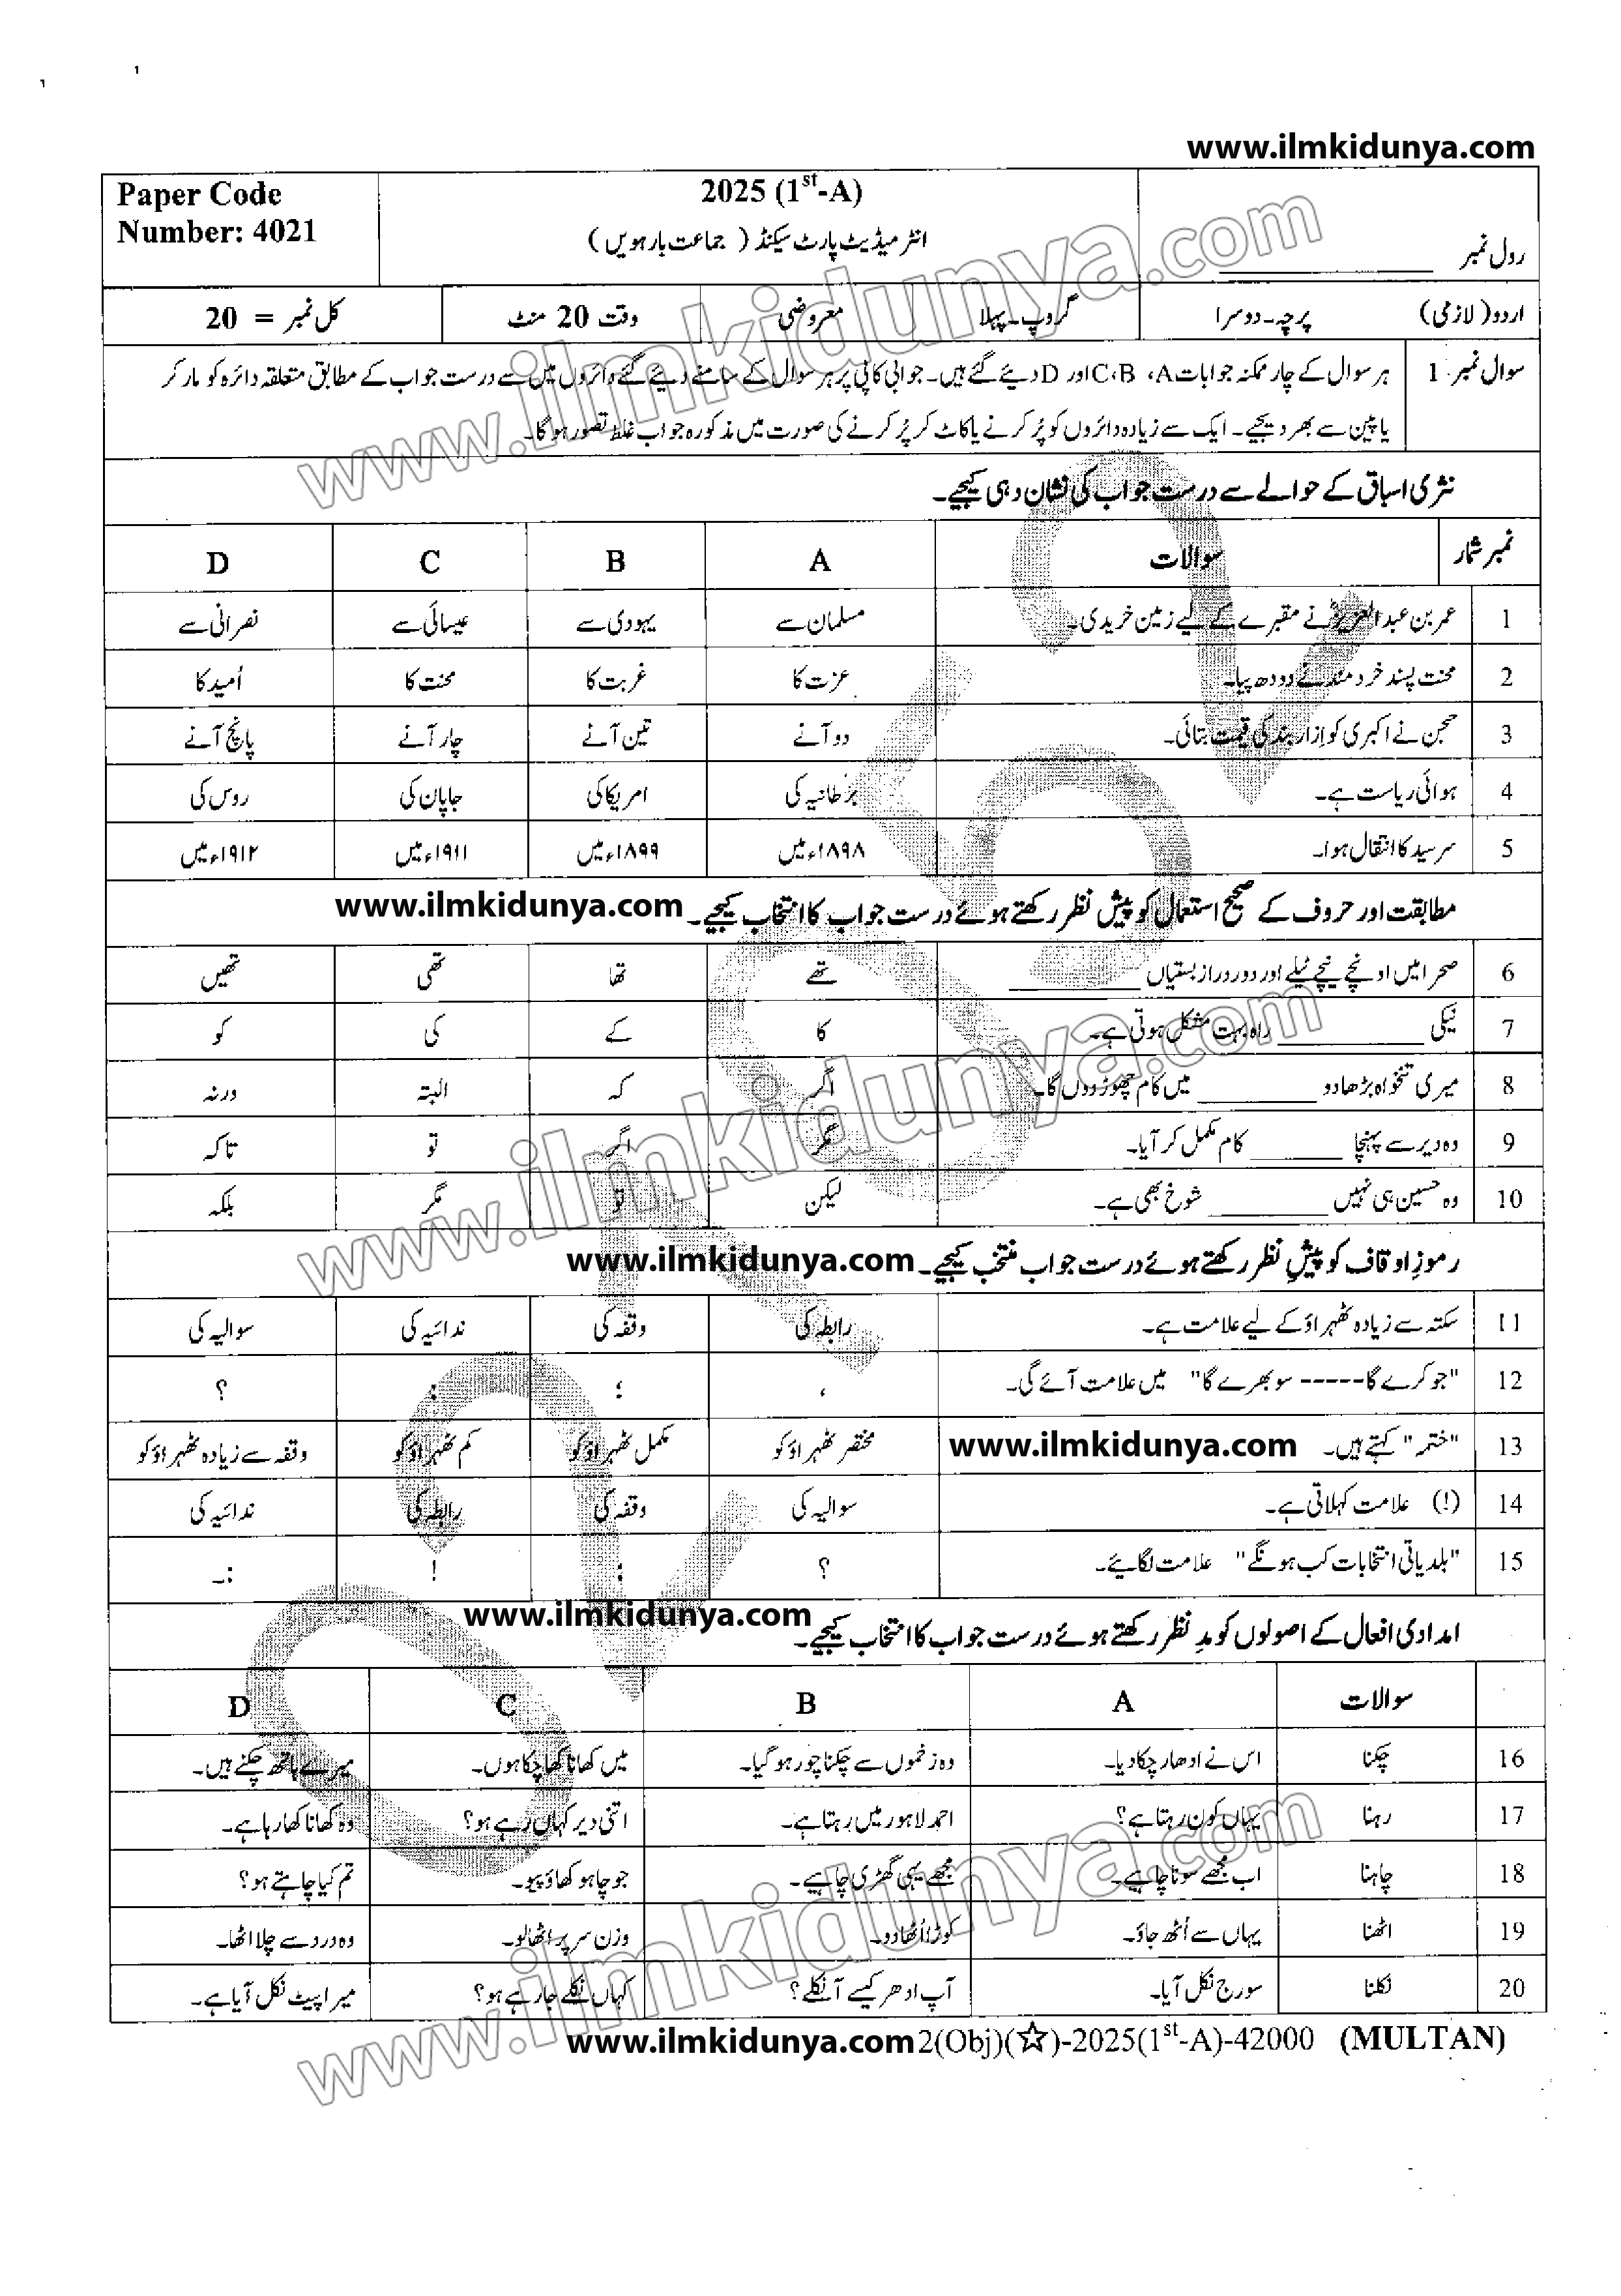 www.ilmkidunya.com
Paper Code 2025 (1st-A)
Number: 4021 انٹر میڈیٹ پارٹ سیکنڈ (جماعت بارہویں) رول نمبر ____________
اردو (لازمی) پرچہ۔دوسرا گروپ۔پہلا معروضی وقت 20 منٹ کل نمبر = 20
سوال نمبر 1 ہر سوال کے چار ممکنہ جوابات A، B، C اور D دیئے گئے ہیں۔ جوابی کاپی پر ہر سوال کے سامنے دیئے گئے دائروں میں سے درست جواب کے مطابق متعلقہ دائرہ کو مارکر
یا پین سے بھر دیجیے۔ ایک سے زیادہ دائروں کو پُر کرنے یا کاٹ کر پُر کرنے کی صورت میں مذکورہ جواب غلط تصور ہوگا۔
نثری اسباق کے حوالے سے درست جواب کی نشان دہی کیجیے۔
نمبر شمار سوالات A B C D
1 عمر بن عبدالعزیزؒ نے مقبرے کے لیے زمین خریدی۔ مسلمان سے یہودی سے عیسائی سے نصرانی سے
2 محنت پسند خرد مند نے دودھ پیا۔ عزت کا غربت کا محنت کا اُمید کا
3 حجن نے اکبری کو ازار بند کی قیمت بتائی۔ دو آنے تین آنے چار آنے پانچ آنے
4 ہوائی ریاست ہے۔ برطانیہ کی امریکا کی جاپان کی روس کی
5 سرسید کا انتقال ہوا۔ ۱۸۹۸ء میں ۱۸۹۹ء میں ۱۹۱۱ء میں ۱۹۱۲ء میں
مطابقت اور حروف کے صحیح استعمال کو پیش نظر رکھتے ہوئے درست جواب کا انتخاب کیجیے۔ www.ilmkidunya.com
6 صحرا میں اونچے نیچے ٹیلے اور دور دراز بستیاں ____________ تھے تھا تھی تھیں
7 نیکی ____________ راہ بہت مشکل ہوتی ہے۔ کا کے کی کو
8 میری تنخواہ بڑھا دو ____________ میں کام چھوڑ دوں گا۔ اگر کہ البتہ ورنہ
9 وہ دیر سے پہنچا ________ کام مکمل کر آیا۔ مگر اگر تو تاکہ
10 وہ حسین ہی نہیں ____________ شوخ بھی ہے۔ لیکن تو مگر بلکہ
رموزِ اوقاف کو پیشِ نظر رکھتے ہوئے درست جواب منتخب کیجیے۔ www.ilmkidunya.com
11 سکتہ سے زیادہ ٹھہراؤ کے لیے علامت ہے۔ رابطہ کی وقفہ کی ندائیہ کی سوالیہ کی
12 "جو کرے گا----- سو بھرے گا" میں علامت آئے گی۔ ، ؛ : ؟
13 "ختمہ" کہتے ہیں۔ www.ilmkidunya.com مختصر ٹھہراؤ کو مکمل ٹھہراؤ کو کم ٹھہراؤ کو وقفہ سے زیادہ ٹھہراؤ کو
14 (!) علامت کہلاتی ہے۔ سوالیہ کی وقفہ کی رابطہ کی ندائیہ کی
15 "بلدیاتی انتخابات کب ہونگے" علامت لگائیے۔ ؟ ! :۔
www.ilmkidunya.com
امدادی افعال کے اصولوں کو مدِ نظر رکھتے ہوئے درست جواب کا انتخاب کیجیے۔
سوالات A B C D
16 چکنا اس نے ادھار چکا دیا۔ وہ زخموں سے چکنا چور ہو گیا۔ میں کھانا کھا چکا ہوں۔ میرے ہاتھ چکنے ہیں۔
17 رہنا یہاں کون رہتا ہے؟ احمد لاہور میں رہتا ہے۔ اتنی دیر کہاں رہے ہو؟ وہ کھانا کھا رہا ہے۔
18 چاہنا اب مجھے سونا چاہیے۔ مجھے یہی گھڑی چاہیے۔ جو چاہو کھاؤ پیو۔ تم کیا چاہتے ہو؟
19 اٹھنا یہاں سے اُٹھ جاؤ۔ کوڑا اُٹھا دو۔ وزن سر پر اٹھا لو۔ وہ درد سے چلا اٹھا۔
20 نکلنا سورج نکل آیا۔ آپ ادھر کیسے آ نکلے؟ کہاں نکلے جا رہے ہو؟ میرا پیٹ نکل آیا ہے۔
www.ilmkidunya.com 2(Obj)(☆)-2025(1st-A)-42000 (MULTAN)